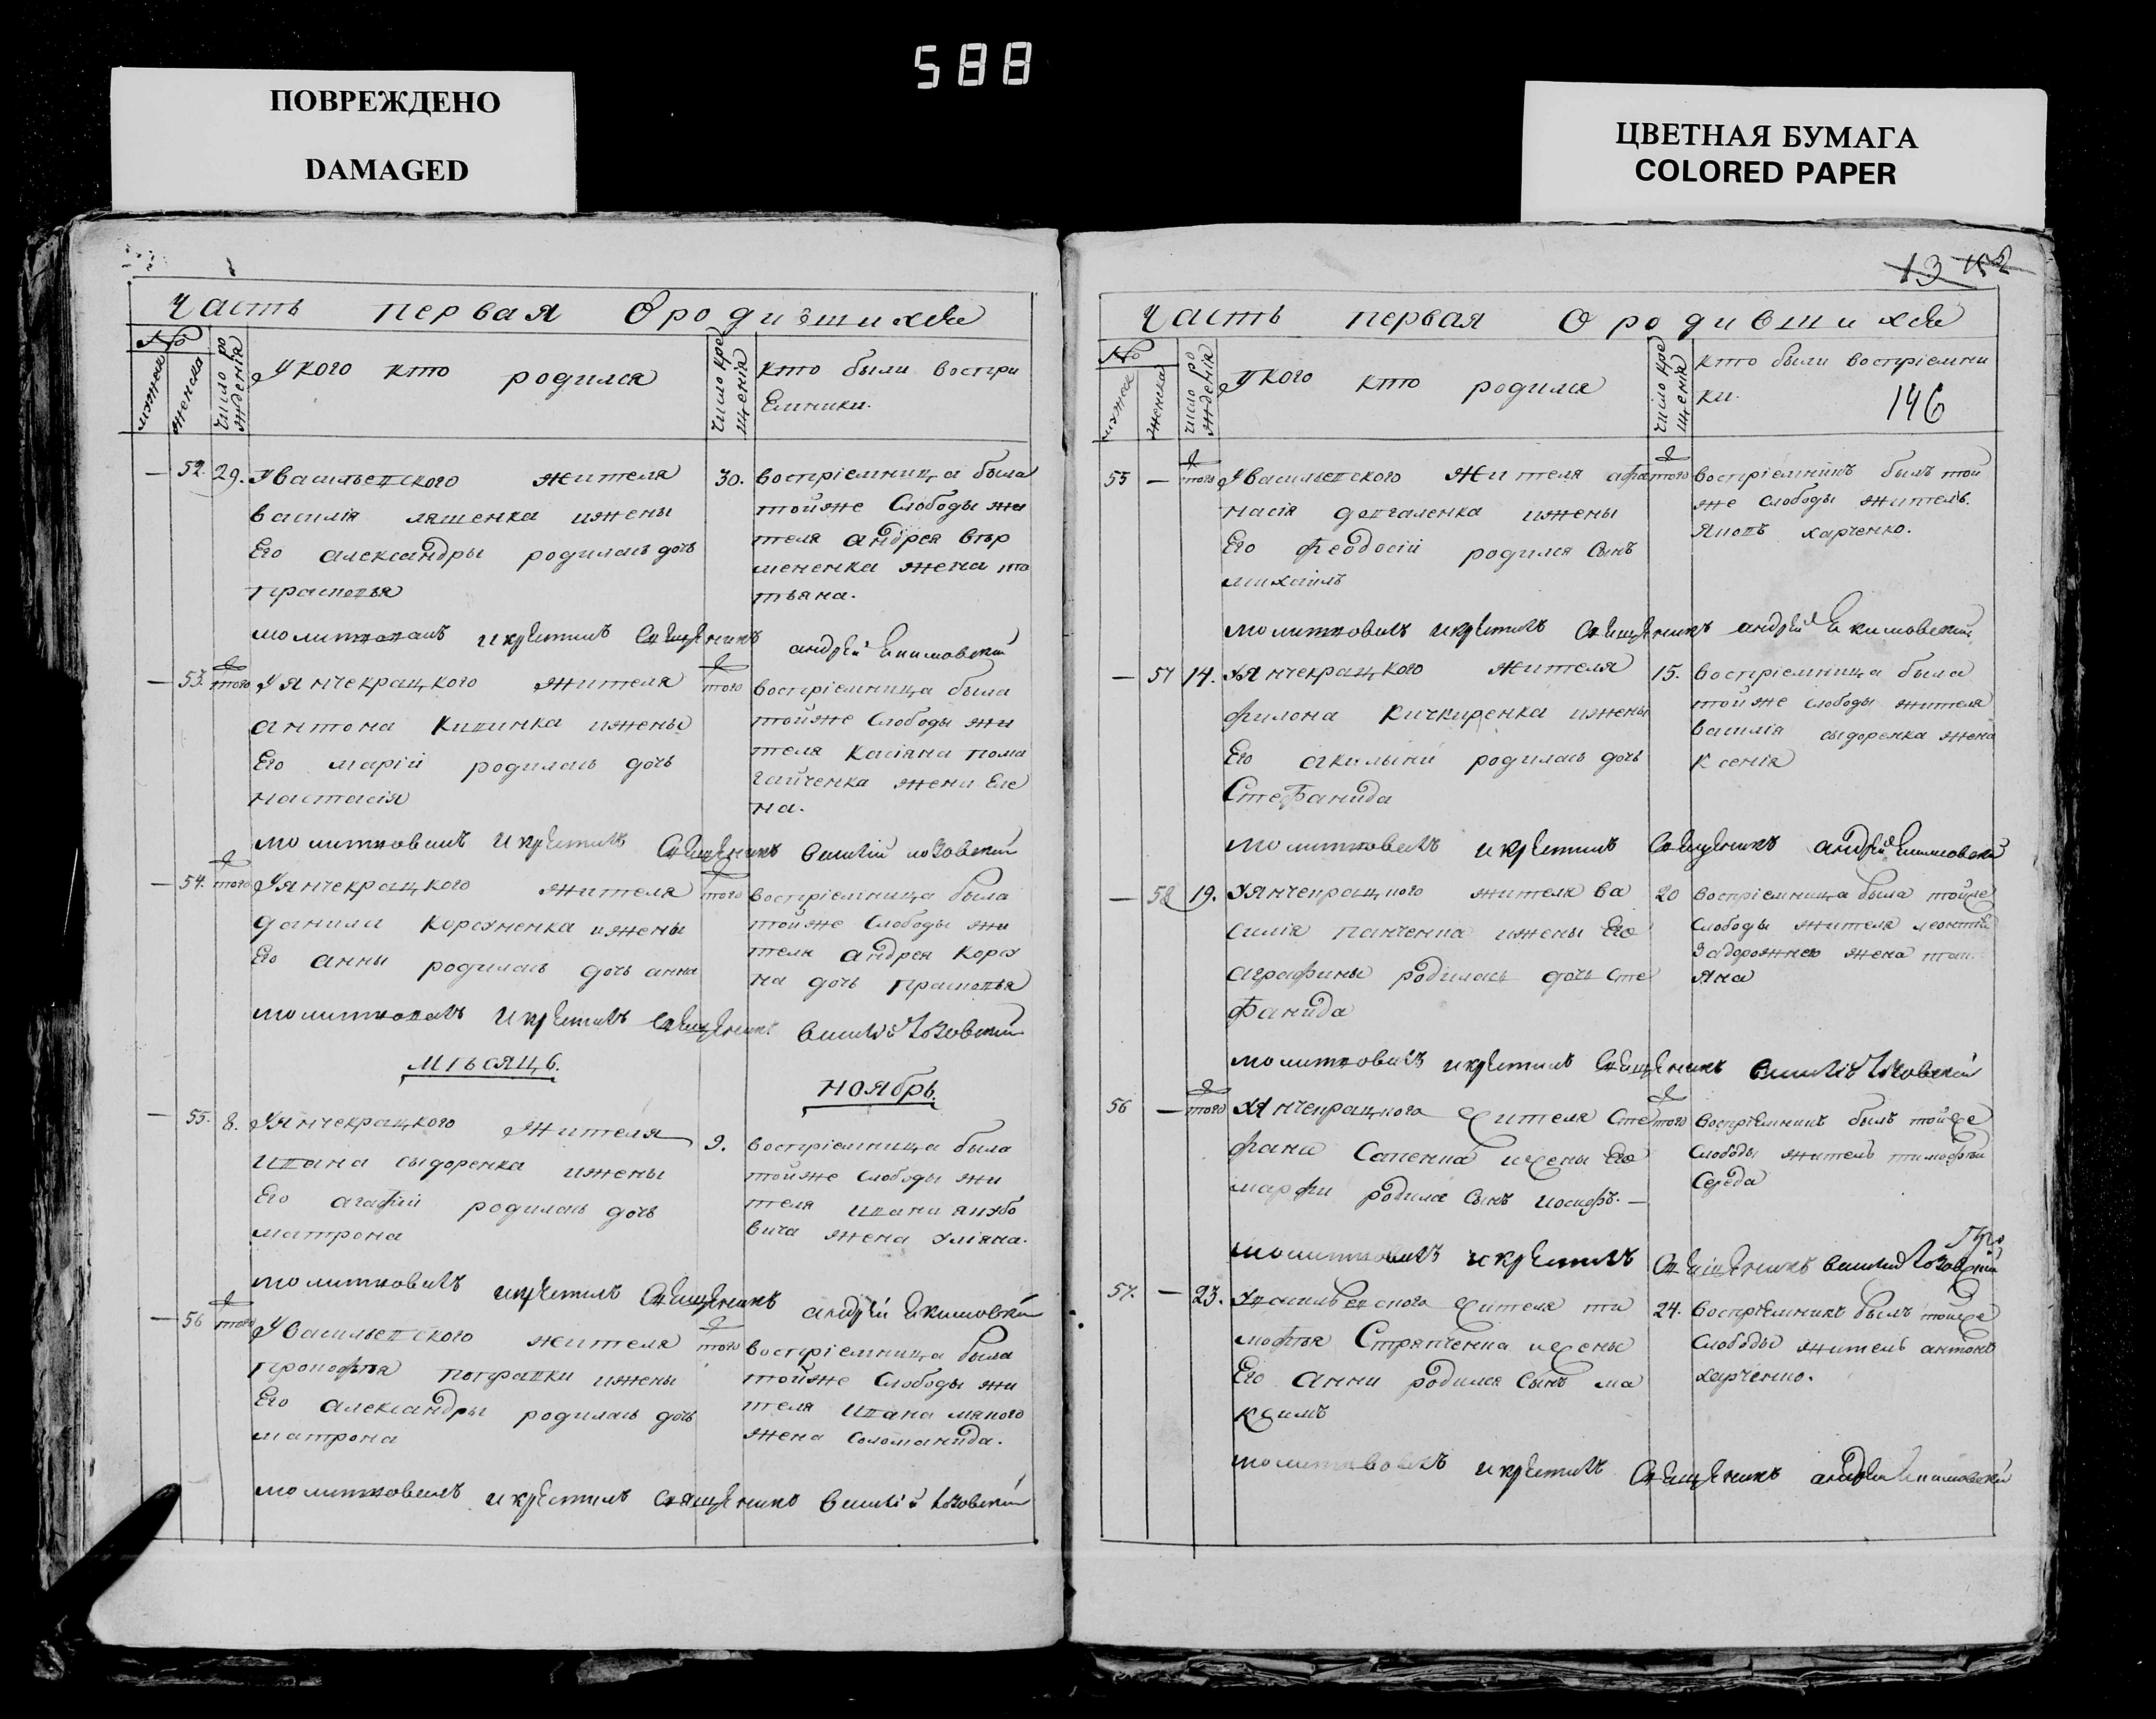 588
ПОВРЕЖДЕНО
DAMAGED
ЦВЕТНАЯ БУМАГА
COLORED PAPER
Часть первая О родившихся
№
мужеск
женска
число ро
жденія
У кого кто родился
число кре
щенія
кто были воспрі
емники.
— 52. 29. У васильевского жителя
василія ляшенка и жены
его александры родилась дочь
прасковья
30. воспріемница была
той же слободы жи
теля андрея
жена
тьяна.
молитвовалъ и крестилъ священникъ андрей Екимовский
— 53. того У янчекрацкого жителя
антона и жены
его марій родилась дочь
настасія
того воспріемница была
той же слободы жи
теля касіяна пома
зайченка жена Еле
на.
молитвовалъ и крестилъ священникъ василій лозовский
— 54. того У янчекрацкого жителя
данила корсуненка и жены
его анны родилась дочь анна
того воспріемница была
той же слободы жи
теля андрея корсу
на дочь прасковья
молитвовалъ и крестилъ священникъ василій лозовский
мѣсяцъ. ноябрь.
— 55. 8. У янчекрацкого жителя
ивана сыдоренка и жены
его агафій родилась дочь
матрона
9. воспріемница была
той же слободы жи
теля ивана якубо
вича жена уліяна.
молитвовалъ и крестилъ священникъ андрей Екимовский
— 56 того У васильевского жителя
прокофья и жены
его александры родилась дочь
матрона
того воспріемница была
той же слободы жи
теля ивана мякого
жена соломанида.
молитвовалъ и крестилъ священникъ василій лозовский
13
146
Часть первая О родившихся
№
мужеск
женска
число ро
жденія
У кого кто родился
число кре
щенія
кто были воспріемни
ки.
55 — того У васильевского жителя афа
насія довгаленка и жены
его феодосій родился сынъ
михаилъ
того воспріемникъ былъ той
же слободы житель.
яковъ харченко.
молитвовалъ и крестилъ священникъ андрей Екимовский
— 57 14. У янчекрацкого жителя
филона кичкиренка и жены
его акилыни родилась дочь
Стефанида
15. воспріемница была
той же слободы жителя
василія сыдоренка жена
ксенія
молитвовалъ и крестилъ священникъ андрей Екимовский
— 58 19. У янчекрацкого жителя ва
силія панченка и жены его
аграфины родилась дочь Сте
фанида
20 воспріемница была той же
слободы жителя леонтія
задорожнего жена
яна
молитвовалъ и крестилъ священникъ василій лозовский
56 — того У янчекрацкого жителя Сте
фана Сапенка и жены его
марфи родился сынъ иосифъ. —
того воспріемникъ былъ той же
слободы житель тимофей
Середа
молитвовалъ и крестилъ священникъ василий лозовский
57. — 23. У васильевского жителя ти
мофея Стрянченка и жены
его анни родился сынъ ма
ксимъ
24. воспріемникъ былъ той же
слободы житель антонъ
харченко.
молитвовалъ и крестилъ священникъ андрей Екимовский